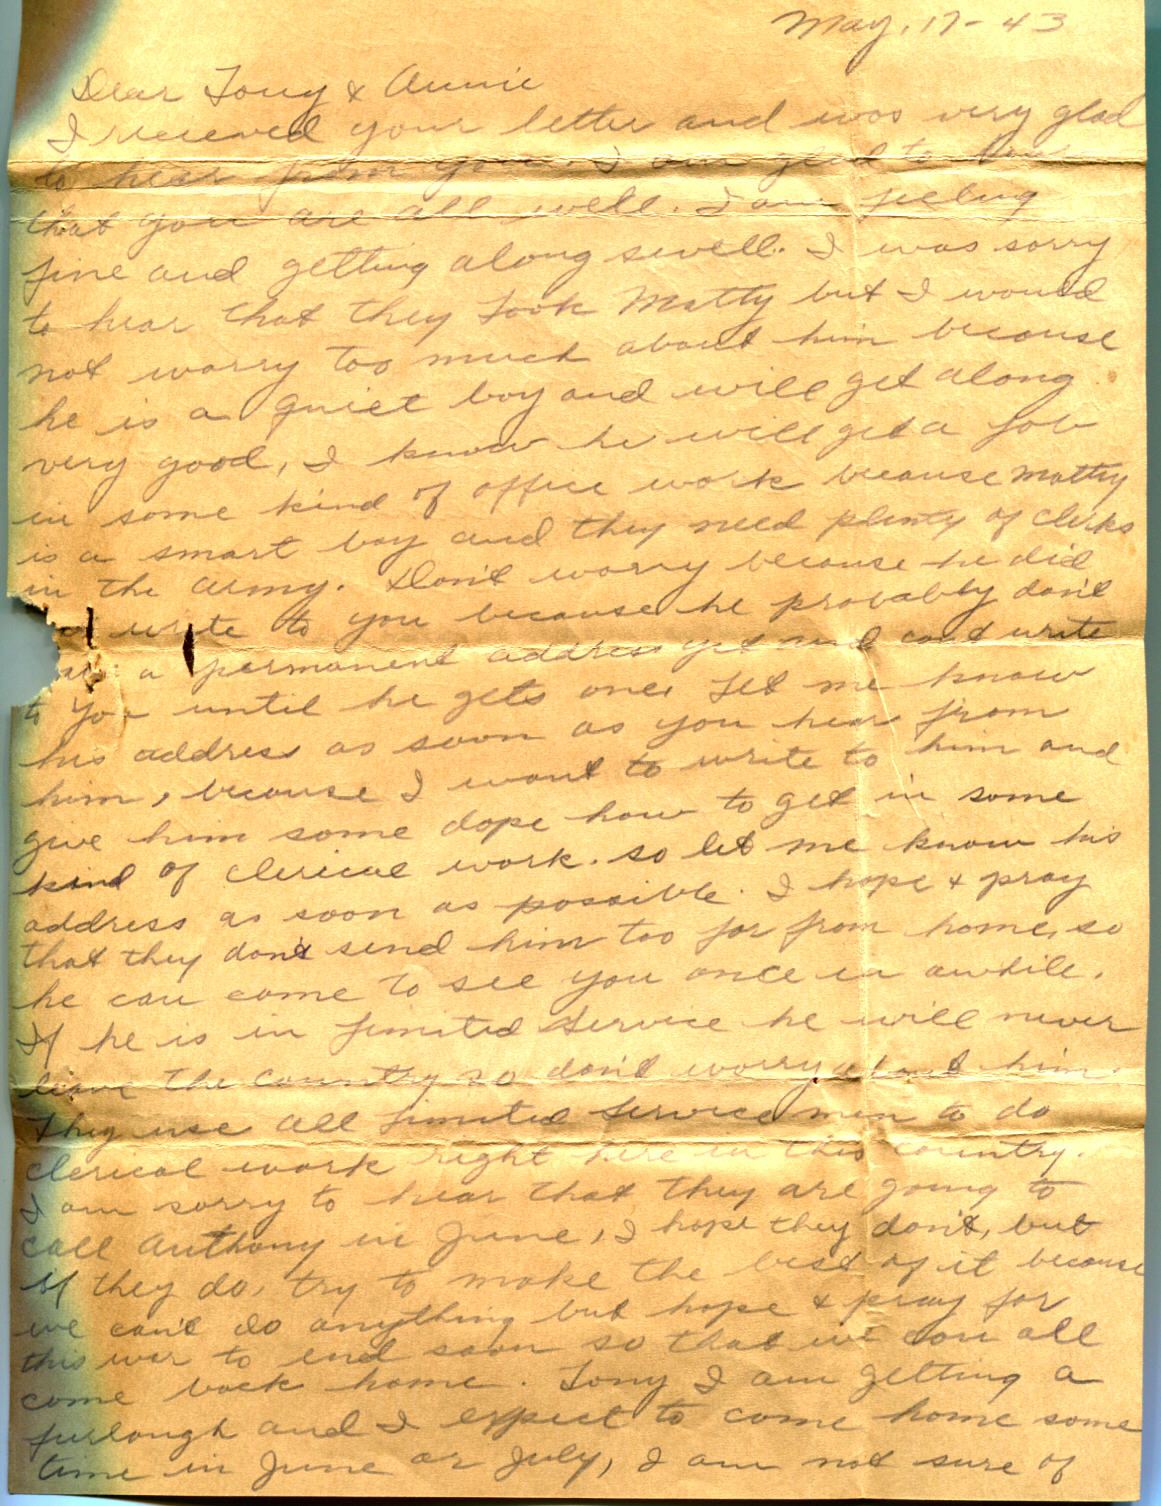 May, 17-43
Dear Tony & Annie
I received your letter and was very glad
to hear from you. I am glad to hear
that you are all well. I am feeling
fine and getting along swell. I was sorry
to hear that they took Matty but I would
not worry too much about him because
he is a quiet boy and will get along
very good, I know he will get a job
in some kind of office work because Matty
is a smart boy and they need plenty of clerks
in the army. Don't worry because he did
write to you because he probably don't
a permanent address yet and can't write
to you until he gets one, let me know
his address as soon as you hear from
him, because I want to write to him and
give him some dope how to get in some
kind of clerical work. so let me know his
address as soon as possible. I hope & pray
that they don't send him too far from home, so
he can come to see you once in awhile.
If he is in limited service he will never
leave the country so don't worry about him.
they use all limited service men to do
clerical work right here in this country.
I am sorry to hear that they are going to
call Anthony in June, I hope they don't, but
if they do, try to make the best of it because
we can't do anything but hope & pray for
this war to end soon so that we can all
come back home. Tony I am getting a
furlough and I expect to come home some
time in June or July, I am not sure of